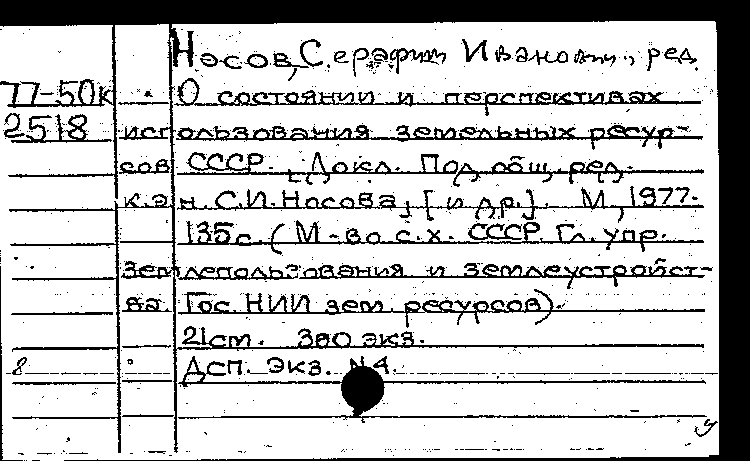 Носов, Серафим Иванович, ред.
77-50к О состоянии и перспективах
2518 использования земельных ресур-
сов СССР. [Докл. Под общ. ред.
к.э.н. С.И. Носова, [и др.]. М, 1977.
135с. (М-во с.х. СССР. Гл. упр.
землепользования и землеустройст-
ва. Гос. НИИ зем. ресурсов).
21см. 300 экз.
8 Дсп. Экз. N4.